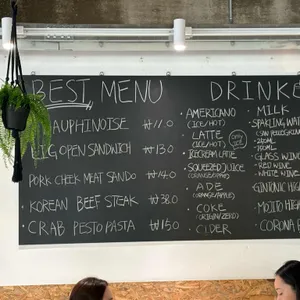 BEST MENU
AUPHINOISE ₩11.0
EGG OPEN SANDWICH ₩13.0
PORK CHEEK MEAT SANDO ₩14.0
KOREAN BEEF STEAK ₩38.0
CRAB PESTO PASTA ₩15.0
DRINK
• AMERICANO
(ICE/HOT)
• LATTE
(ICE/HOT)
ONLY ICE
• ICECREAM LATTE
• SQUEEZED JUICE
(ORANGE/APPLE)
• ADE
(ORANGE/APPLE)
• COKE
(ORIGIN/ZERO)
• CIDER
• MILK
• SPARKLING WAT
(SAN PELLEGRI
• GLASS WINE
• RED WINE
• WHITE WINE
GINTONIC HIGH
MOJITO HIGH
CORONA